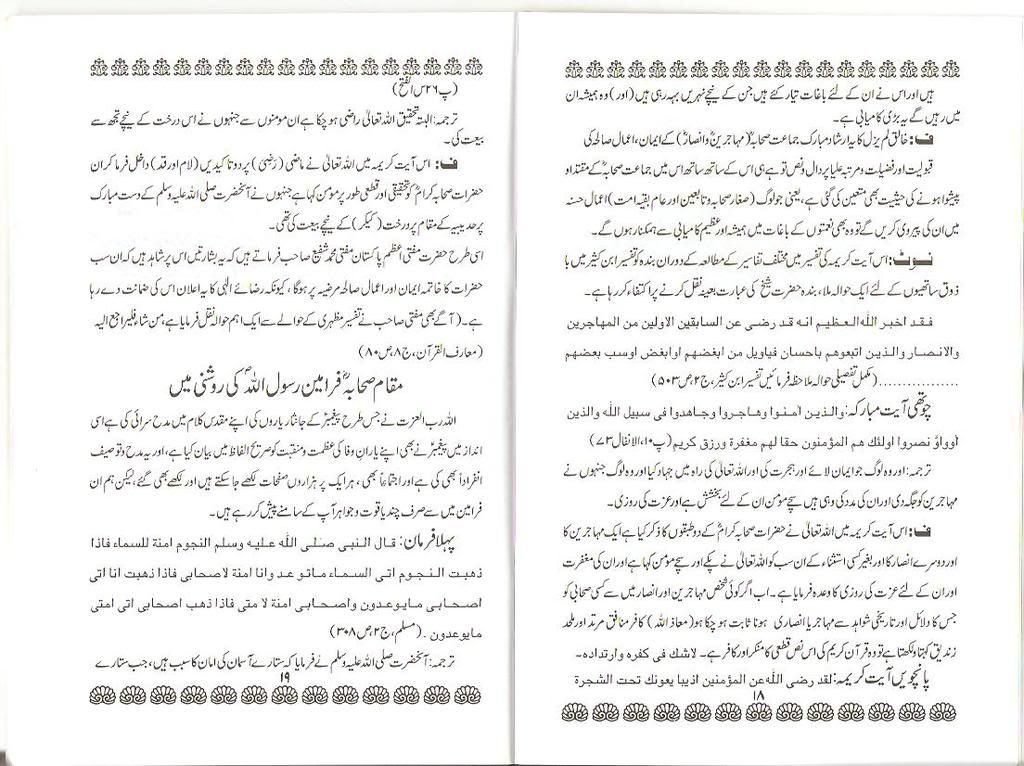 ہیں اور اس نے ان کے لئے باغات تیار کئے ہیں جن کے نیچے نہریں بہہ رہی ہیں (اور) وہ ہمیشہ ان
میں رہیں گے یہ بڑی کامیابی ہے۔
ف: خالق لم یزل کا یہ ارشاد مبارک جماعت صحابہؓ (مہاجرینؓ وانصارؓ) کے ایمان، اعمال صالحہ کی
قبولیت اور فضیلت ومرتبہ علیا پر دال ونص تو ہے ہی اس کے ساتھ ساتھ اس میں جماعت صحابہؓ کے مقتدا و
پیشوا ہونے کی حیثیت بھی متعین کی گئی ہے، یعنی جو لوگ (صغار صحابہ وتابعین اور عام بقیہ امت) اعمال حسنہ
میں ان کی پیروی کریں گے تو وہ بھی نعمتوں کے باغات میں ہمیشہ اور عظیم کامیابی سے ہمکنار ہوں گے۔
نوٹ: اس آیت کریمہ کی تفسیر میں مختلف تفاسیر کے مطالعہ کے دوران بندہ کو تفسیر ابن کثیر میں با
ذوق ساتھیوں کے لئے ایک حوالہ ملا، بندہ حضرت شیخ کی عبارت بعینہ نقل کرنے پر اکتفاء کر رہا ہے۔
فقد اخبر اللہ العظیم انه قد رضی عن السابقین الاولین من المهاجرین
والانصار والذین اتبعوهم باحسان فیاویل من ابغضهم اوابغض اوسب بعضهم
................(مکمل تفصیلی حوالہ ملاحظہ فرمائیں تفسیر ابن کثیر، ج۲، ص۵۰۳)
چوتھی آیت مبارکہ: والذین آمنوا وهاجروا وجاهدوا فی سبیل اللہ والذین
آوواوّ نصروا اولئك هم المؤمنون حقا لهم مغفرة ورزق كریم (پ۱۰، الانفال ۷۳)
ترجمہ: اور وہ لوگ جو ایمان لائے اور ہجرت کی اور اللہ تعالیٰ کی راہ میں جہاد کیا اور وہ لوگ جنہوں نے
مہاجرین کو جگہ دی اور ان کی مدد کی وہی ہیں سچے مومن ان کے لئے بخشش ہے اور عزت کی روزی۔
ف: اس آیت کریمہ میں اللہ تعالیٰ نے حضرات صحابہ کرامؓ کے دو طبقوں کا ذکر کیا ہے ایک مہاجرین کا
اور دوسرے انصار کا اور بغیر کسی استثناء کے ان سب کو اللہ تعالیٰ نے پکے اور سچے مومن کہا ہے اور ان کی مغفرت
اور ان کے لئے عزت کی روزی کا وعدہ فرمایا ہے۔ اب اگر کوئی شخص مہاجرین اور انصار میں سے کسی صحابی کو
جس کا دلائل اور تاریخی شواہد سے مہاجر یا انصاری ہونا ثابت ہو چکا ہو (معاذ اللہ) کافر منافق مرتد اور ملحد
زندیق کہتا ولکھتا ہے تو وہ قرآن کریم کی اس نص قطعی کا منکر اور کافر ہے۔ لاشك فی كفره وارتداده۔
پانچویں آیت کریمہ: لقد رضی اللہ عن المؤمنین اذیبا یعونك تحت الشجرة
۱۸
(پ۲۶ س الفتح)
ترجمہ: البتہ تحقیق اللہ تعالیٰ راضی ہو چکا ہے ان مومنوں سے جنہوں نے اس درخت کے نیچے تجھ سے
بیعت کی۔
ف: اس آیت کریمہ میں اللہ تعالیٰ نے ماضی (رَضِیَ) پر دو تاکیدیں (لام اور قد) داخل فرما کر ان
حضرات صحابہ کرامؓ کو تحقیقی اور قطعی طور پر مومن کہا ہے جنہوں نے آنحضرت صلی اللہ علیہ وسلم کے دست مبارک
پر حدیبیہ کے مقام پر درخت (کیکر) کے نیچے بیعت کی تھی۔
اسی طرح حضرت مفتی اعظم پاکستان مفتی محمد شفیع صاحب فرماتے ہیں کہ یہ بشارتیں اس پر شاہد ہیں کہ ان سب
حضرات کا خاتمہ ایمان اور اعمال صالحہ مرضیہ پر ہوگا، کیونکہ رضائے الٰہی کا یہ اعلان اس کی ضمانت دے رہا
ہے۔ (آگے بھی مفتی صاحب نے تفسیر مظہری کے حوالے سے ایک اہم حوالہ نقل فرمایا ہے، من شاء فلیراجع الیہ
(معارف القرآن، ج۸، ص۸۰)
مقام صحابہؓ فرامین رسول اللہؐ کی روشنی میں
اللہ رب العزت نے جس طرح پیغمبرؐ کے جانثار یاروں کی اپنے مقدس کلام میں مدح سرائی کی ہے اسی
انداز میں پیغمبرؐ نے بھی اپنے یاران وفا کی عظمت ومنقبت کو صریح الفاظ میں بیان کیا ہے، اور یہ مدح وتوصیف
انفراداً بھی کی ہے اور اجتماعاً بھی، ہر ایک پر ہزاروں صفحات لکھے جا سکتے ہیں اور لکھے بھی گئے، لیکن ہم ان
فرامین میں سے صرف چند یاقوت وجواہر آپ کے سامنے پیش کر رہے ہیں۔
پہلا فرمان: قال النبی صلی اللہ علیه وسلم النجوم امنة للسماء فاذا
ذهبت النجوم اتی السماء ماتوعد وانا امنة لاصحابی فاذا ذهبت انا اتی
اصحابی مایوعدون واصحابی امنة لا متی فاذا ذهب اصحابی اتی امتی
مایوعدون۔ (مسلم، ج۲، ص۳۰۸)
ترجمہ: آنحضرت صلی اللہ علیہ وسلم نے فرمایا کہ ستارے آسمان کی امان کا سبب ہیں، جب ستارے
۱۹